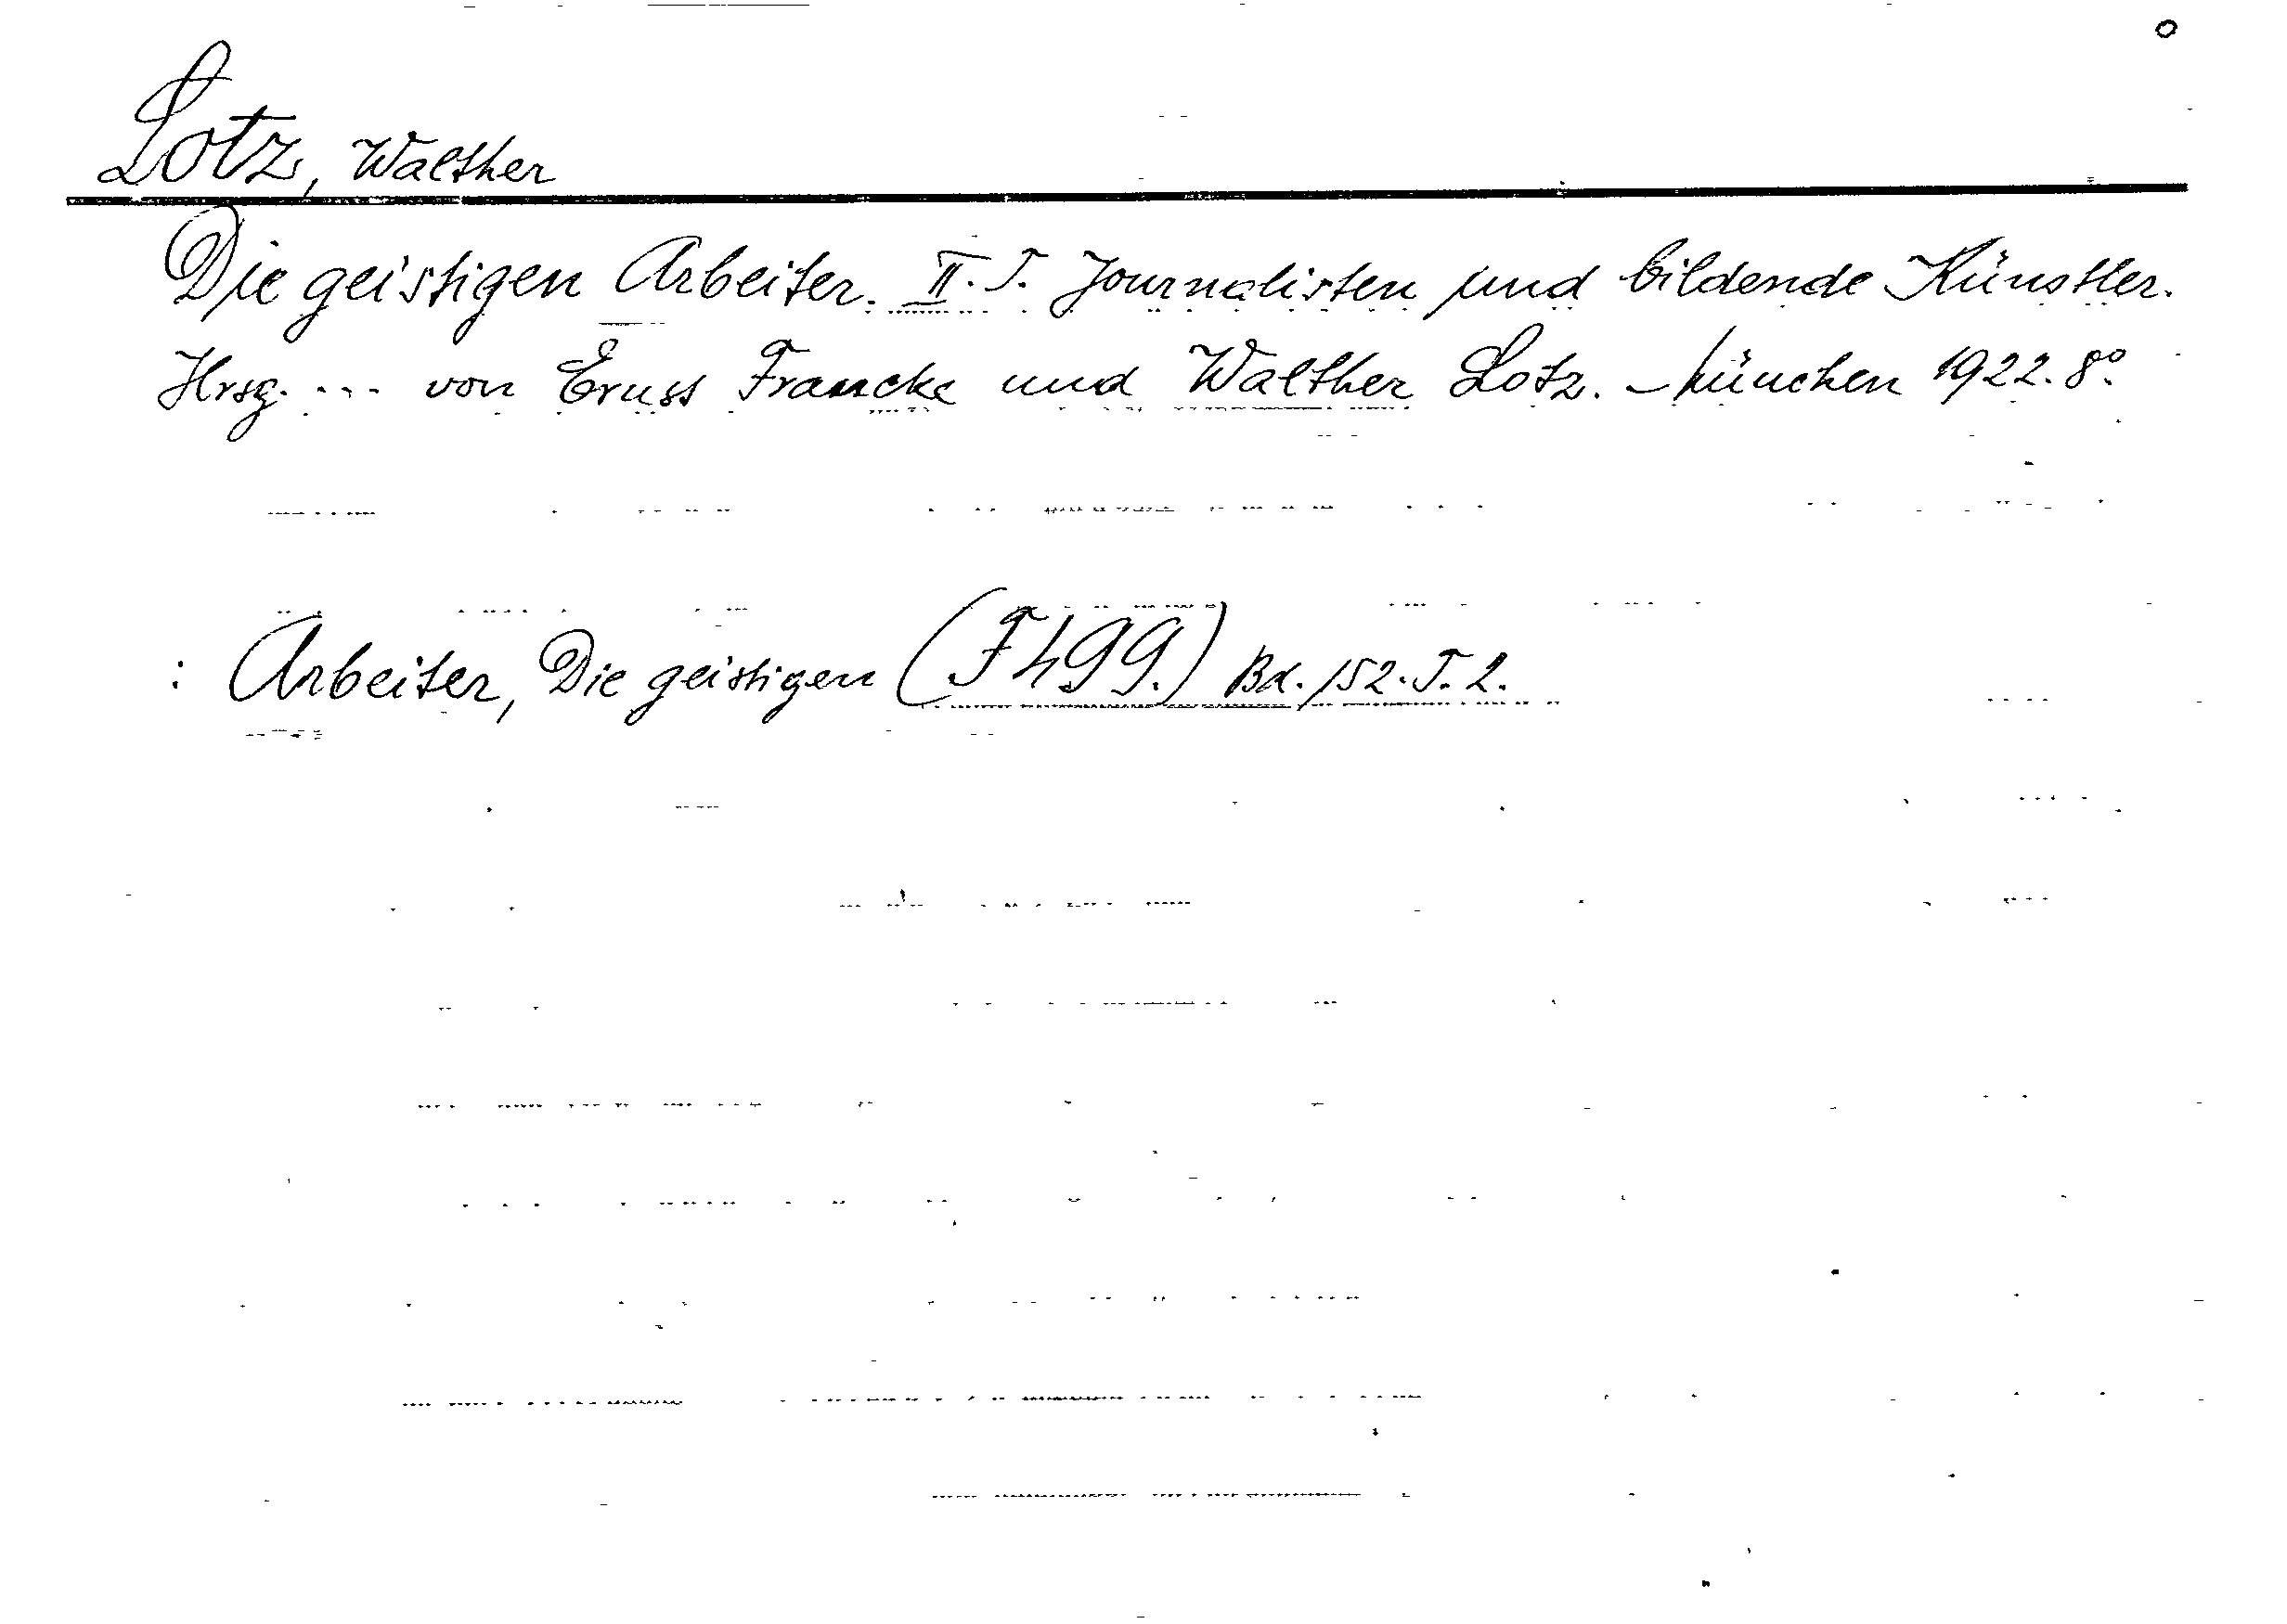 Lotz, Walther
Die geistigen Arbeiter. II. T. Journalisten und bildende Künstler.
Hrsg. ... von Ernst Francke und Walther Lotz. – München 1922. 8°.
: Arbeiter, Die geistigen (F 499.) Bd. 152. T. 2.